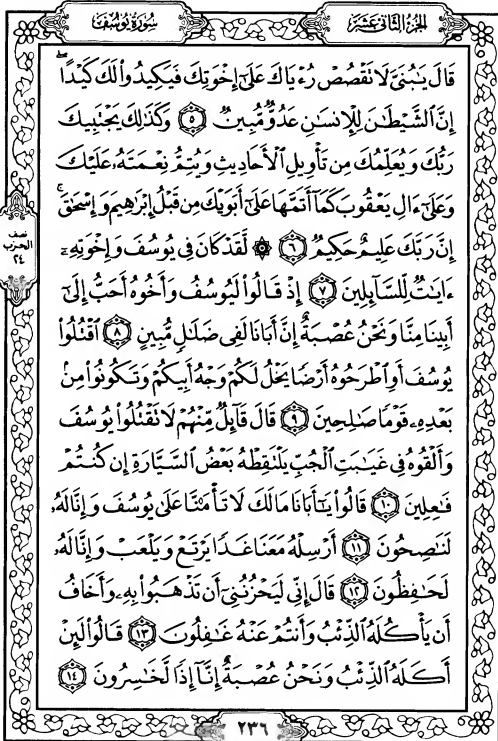 الجزء الثاني عشر
سورة يوسف
قَالَ يَٰبُنَىَّ لَا تَقْصُصْ رُءْيَاكَ عَلَىٰٓ إِخْوَتِكَ فَيَكِيدُوا۟ لَكَ كَيْدًا ۖ
إِنَّ ٱلشَّيْطَٰنَ لِلْإِنسَٰنِ عَدُوٌّ مُّبِينٌ ۝٥ وَكَذَٰلِكَ يَجْتَبِيكَ
رَبُّكَ وَيُعَلِّمُكَ مِن تَأْوِيلِ ٱلْأَحَادِيثِ وَيُتِمُّ نِعْمَتَهُۥ عَلَيْكَ
وَعَلَىٰٓ ءَالِ يَعْقُوبَ كَمَآ أَتَمَّهَا عَلَىٰٓ أَبَوَيْكَ مِن قَبْلُ إِبْرَٰهِيمَ وَإِسْحَٰقَ ۚ
إِنَّ رَبَّكَ عَلِيمٌ حَكِيمٌ ۝٦ ۞ لَّقَدْ كَانَ فِى يُوسُفَ وَإِخْوَتِهِۦٓ
ءَايَٰتٌ لِّلسَّآئِلِينَ ۝٧ إِذْ قَالُوا۟ لَيُوسُفُ وَأَخُوهُ أَحَبُّ إِلَىٰٓ
أَبِينَا مِنَّا وَنَحْنُ عُصْبَةٌ إِنَّ أَبَانَا لَفِى ضَلَٰلٍ مُّبِينٍ ۝٨ ٱقْتُلُوا۟
يُوسُفَ أَوِ ٱطْرَحُوهُ أَرْضًا يَخْلُ لَكُمْ وَجْهُ أَبِيكُمْ وَتَكُونُوا۟ مِنۢ
بَعْدِهِۦ قَوْمًا صَٰلِحِينَ ۝٩ قَالَ قَآئِلٌ مِّنْهُمْ لَا تَقْتُلُوا۟ يُوسُفَ
وَأَلْقُوهُ فِى غَيَٰبَتِ ٱلْجُبِّ يَلْتَقِطْهُ بَعْضُ ٱلسَّيَّارَةِ إِن كُنتُمْ
فَٰعِلِينَ ۝١٠ قَالُوا۟ يَٰٓأَبَانَا مَا لَكَ لَا تَأْمَ۫نَّا عَلَىٰ يُوسُفَ وَإِنَّا لَهُۥ
لَنَٰصِحُونَ ۝١١ أَرْسِلْهُ مَعَنَا غَدًا يَرْتَعْ وَيَلْعَبْ وَإِنَّا لَهُۥ
لَحَٰفِظُونَ ۝١٢ قَالَ إِنِّى لَيَحْزُنُنِىٓ أَن تَذْهَبُوا۟ بِهِۦ وَأَخَافُ
أَن يَأْكُلَهُ ٱلذِّئْبُ وَأَنتُمْ عَنْهُ غَٰفِلُونَ ۝١٣ قَالُوا۟ لَئِنْ
أَكَلَهُ ٱلذِّئْبُ وَنَحْنُ عُصْبَةٌ إِنَّآ إِذًا لَّخَٰسِرُونَ ۝١٤
نصف
الحزب
٢٤
٢٣٦